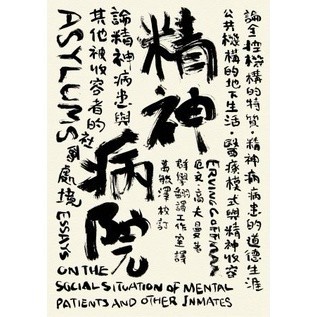 論全控機構的特質・精神病病患的道德生涯
公共機構的地下生活・醫療模式與精神收容
精神
病院
論精神病患與
其他被收容者的社
會處境
ASYLUMS
ERVING GOFFMAN
厄文・高夫曼 著
群學翻譯工作室 譯
萬毓澤 校訂
ESSAYS
ON THE
SOCIAL SITUATION OF MENTAL
PATIENTS AND OTHER INMATES